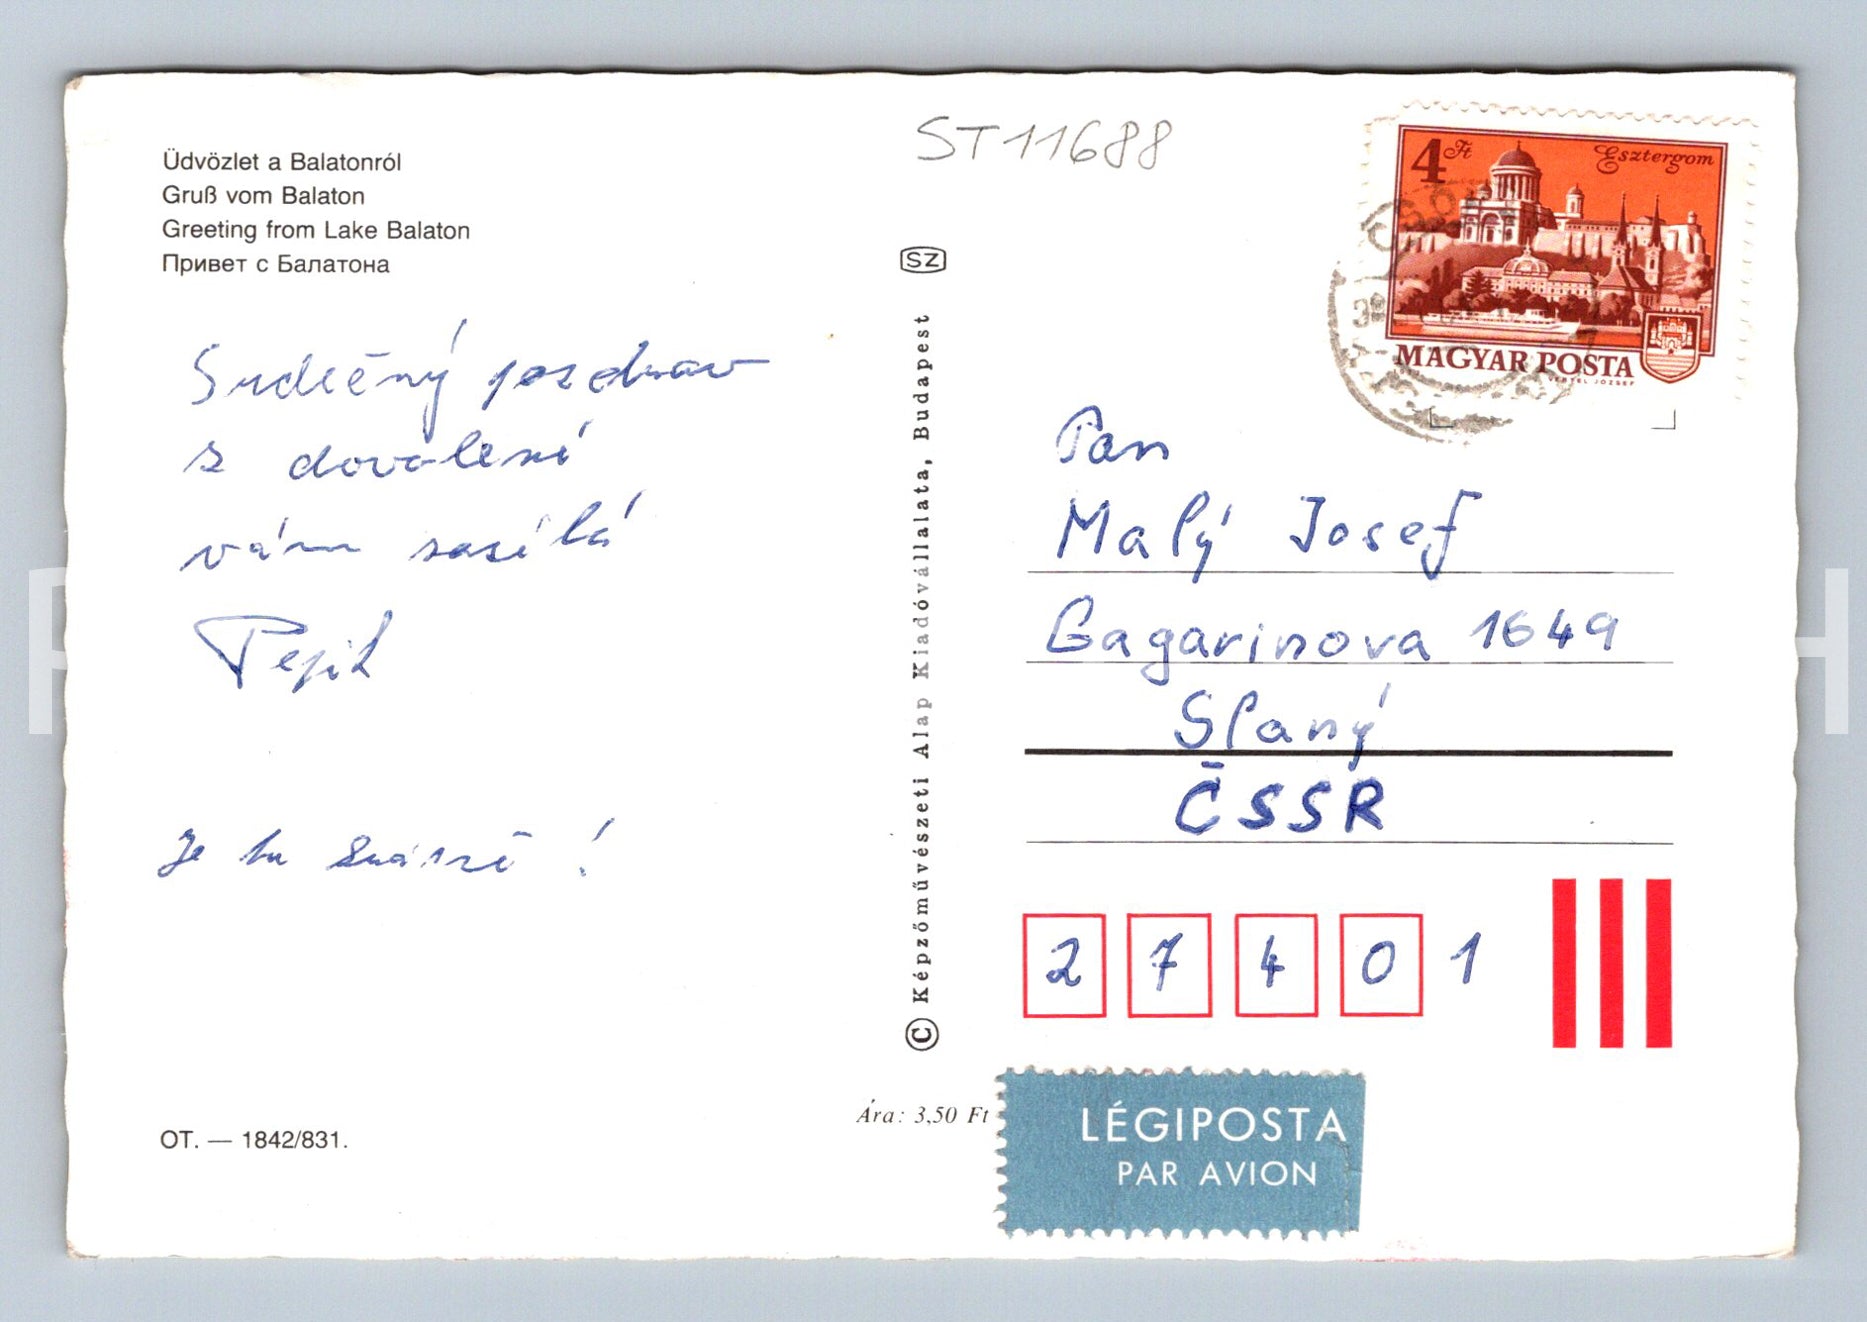 Üdvözlet a Balatonról
Gruß vom Balaton
Greeting from Lake Balaton
Привет с Балатона
Srdečný pozdrav
z dovolené
vám zasílá
Pepík
Je tu krásně!
OT. — 1842/831.
ST11688
SZ
© Képzőművészeti Alap Kiadóvállalata, Budapest
Ára: 3,50 Ft
4 Ft
Esztergom
MAGYAR POSTA
VERTEL JÓZSEF
Pan
Malý Josef
Gagarinova 1649
Slaný
ČSSR
2 7 4 0 1
LÉGIPOSTA
PAR AVION